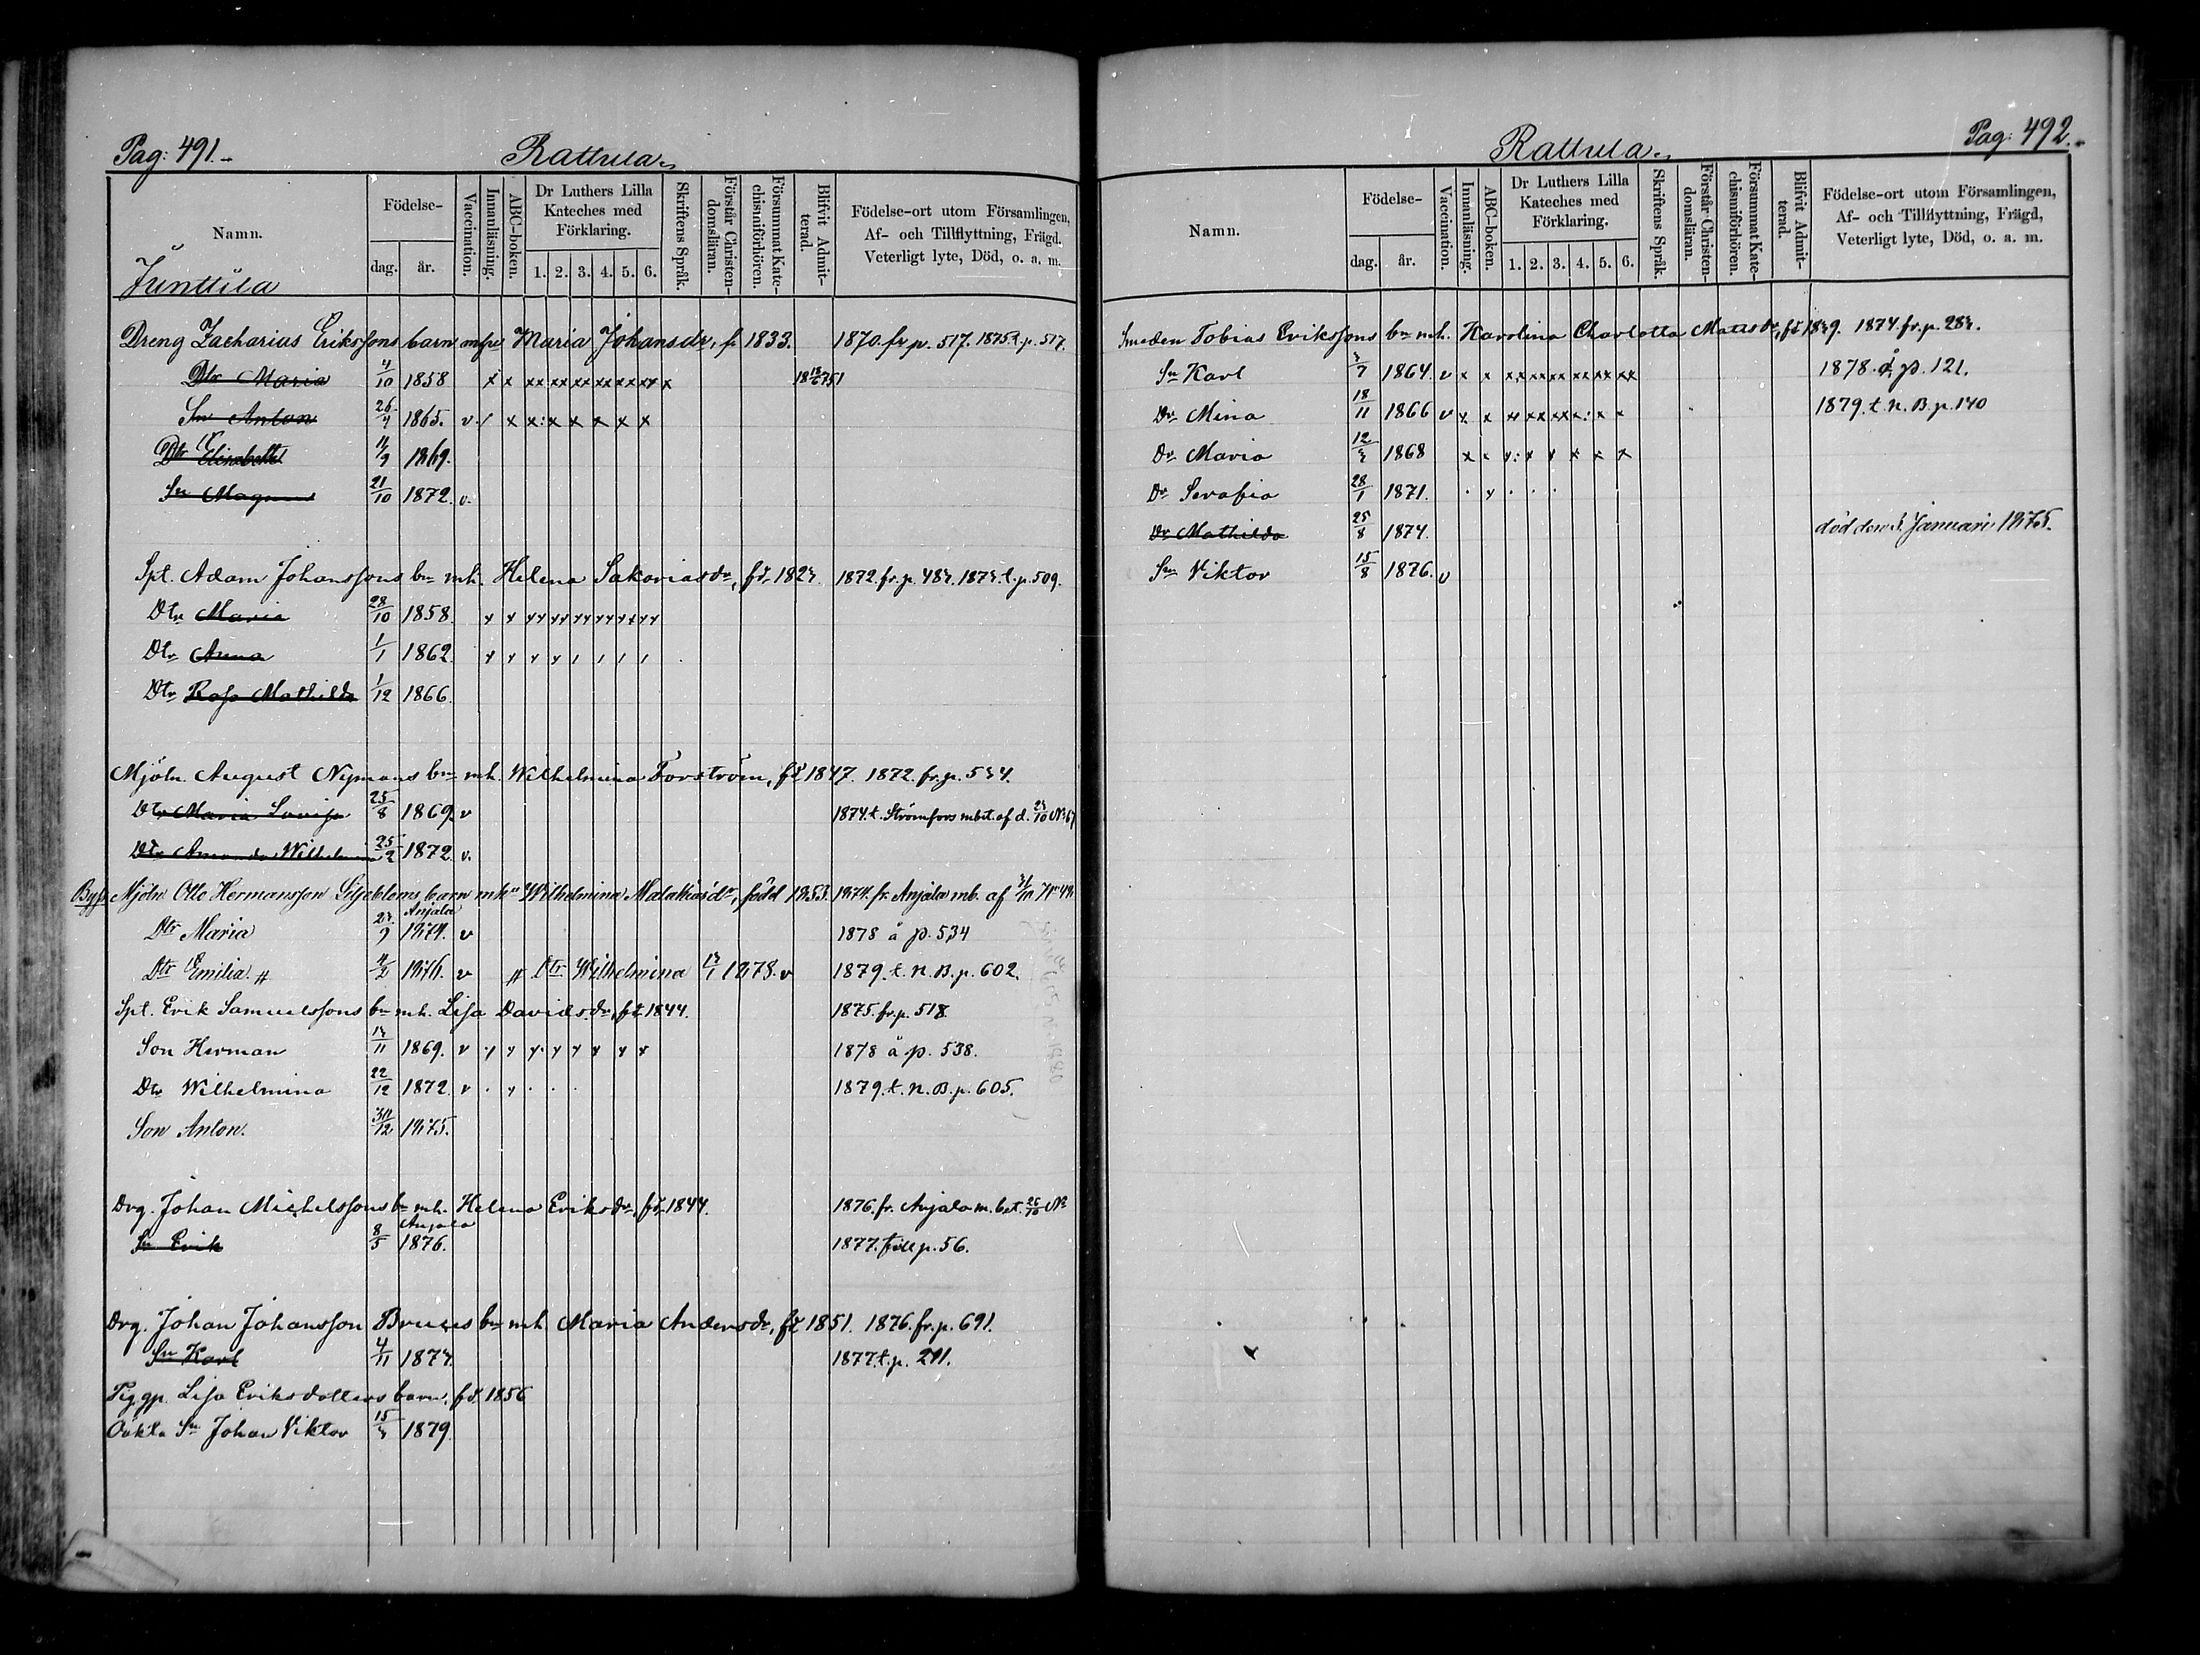 Pag: 491.-
Rattula
Namn.
Födelse-
dag.
år.
Vaccination.
Innanläsning.
ABC-boken.
Dr Luthers Lilla
Kateches med
Förklaring.
1. 2. 3. 4. 5. 6.
Skriftens Språk.
Förstår Christen-
domsläran.
Försummat Kate-
chismiförhören.
Blifvit Admit-
terad.
Födelse-ort utom Församlingen,
Af- och Tillflyttning, Frägd.
Veterligt lyte, Död, o. a. m.
Junttila
Dreng Zacharias Erikssons barn m hu Maria Johansdr, f. 1833. 1870. fr p. 517. 1875 t. p. 517.
Dtr Maria 4/10 1858 x x xx xx xx xx xx xx x
Sn Anton 26/4 1865. v / x x: x x x x x
Dtr Elisabeth 11/9 1869.
Sn Magnus 21/10 1872. v.
Spt. Adam Johanssons bn mh. Helena Sakariasdr, fd 1823 1872. fr. p. 483. 1873. t. p. 509.
Dtr Maria 28/10 1858. x x xx xx xx xx xx xx
Dtr Anna 1/1 1862. x x x x / / / /
Dtr Rosa Mathilda 1/12 1866.
Mjöln. August Nymans bn mh. Wilhelmina Forström, fd 1847. 1872. fr. p. 534.
Dtr Maria Lovisa 25/8 1869. v 1874. t. Strömfors m bet. af d. 23/10 No 67
Dtr Amanda Wilhelmina 25/2 1872 v.
Mjöln Otto Hermansson Liljebloms barn m hu Wilhelmina Malakiasdr, född 1853. 1874. fr. Anjala mb. af 31/10 No 48
Dtr Maria 23/9 Anjala 1874. v 1878 å p. 534
Dtr Emilia # 4/2 1876. v # Dtr Wilhelmina 13/1 1878. v 1879. t. N. B. p. 602.
Spt. Erik Samuelssons bn mh. Lisa Davidsdr, fd 1844. 1875. fr. p. 518
Son Herman 13/11 1869. v x x x x x x x x 1878 å p. 538.
Dtr Wilhelmina 22/12 1872. v . x . . . 1879. t. N. B. p. 605.
Son Anton. 30/12 1875.
Drg. Johan Michelssons bn mh. Helena Eriksdr, fd 1844. 1876. fr. Anjala m. bet. 25/10 No
Sn Erik 8/5 Anjala 1876. 1877. till p. 56.
Drg. Johan Johansson Bruuns bn mh. Maria Andersdr, fd 1851. 1876. fr. p. 691.
Sn Karl 4/11 1873. 1877. t. p. 291.
Pig. gp. Lisa Eriksdotters barn, fd 1856
Oäkta Sn Johan Viktor 15/3 1879.
Rattula
Pag. 492.
Namn.
Födelse-
dag.
år.
Vaccination.
Innanläsning.
ABC-boken.
Dr Luthers Lilla
Kateches med
Förklaring.
1. 2. 3. 4. 5. 6.
Skriftens Språk.
Förstår Christen-
domsläran.
Försummat Kate-
chismiförhören.
Blifvit Admit-
terad.
Födelse-ort utom Församlingen,
Af- och Tillflyttning, Frägd,
Veterligt lyte, Död, o. a. m.
Smeden Tobias Erikssons bn mh. Karolina Charlotta Mattsdr, fd 1839. 1874. fr. p. 283.
Sn Karl 3/7 1864. v x x xx xx xx xx xx xx 1878. å p. 121.
Dr Mina 18/11 1866 v x x xx xx xx x: x x 1879. t. N. B. p. 140
Dr Maria 12/3 1868 x x x: x x x x x
Dr Serafia 28/1 1871. . x . . .
Dr Mathilda 25/8 1874. död den 3. Januari 1875.
Sn Viktor 15/8 1876. v
x